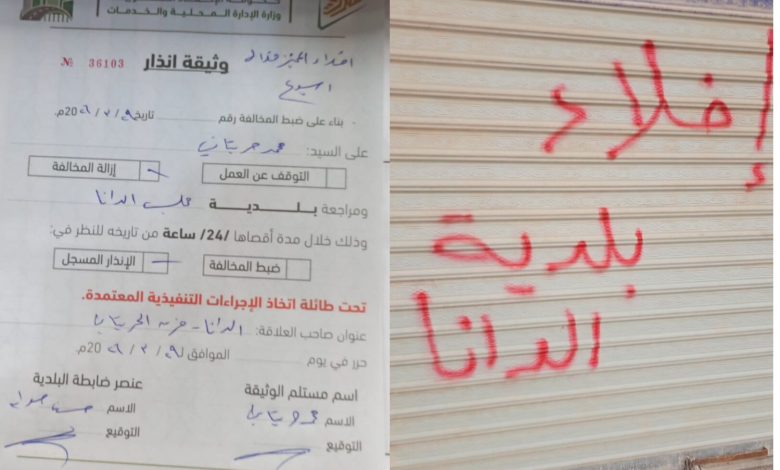 وزارة الإدارة المحلية والخدمات
№ 36103
وثيقة انذار
اسبوع
بناء على ضبط المخالفة رقم تاريخ / / 20م.
على السيد: محمد حريتاني
التوقف عن العمل
إزالة المخالفة
ومراجعة بلدية الدانا
وذلك خلال مدة أقصاها /24/ ساعة من تاريخه للنظر في:
ضبط المخالفة
الإنذار المسجل
تحت طائلة اتخاذ الإجراءات التنفيذية المعتمدة.
عنوان صاحب العلاقة: الدانا -
حرر في يوم الموافق لـ / / 20م.
اسم مستلم الوثيقة
عنصر ضابطة البلدية
الاسم
الاسم
التوقيع
التوقيع
إخلاء
بلدية
الدانا